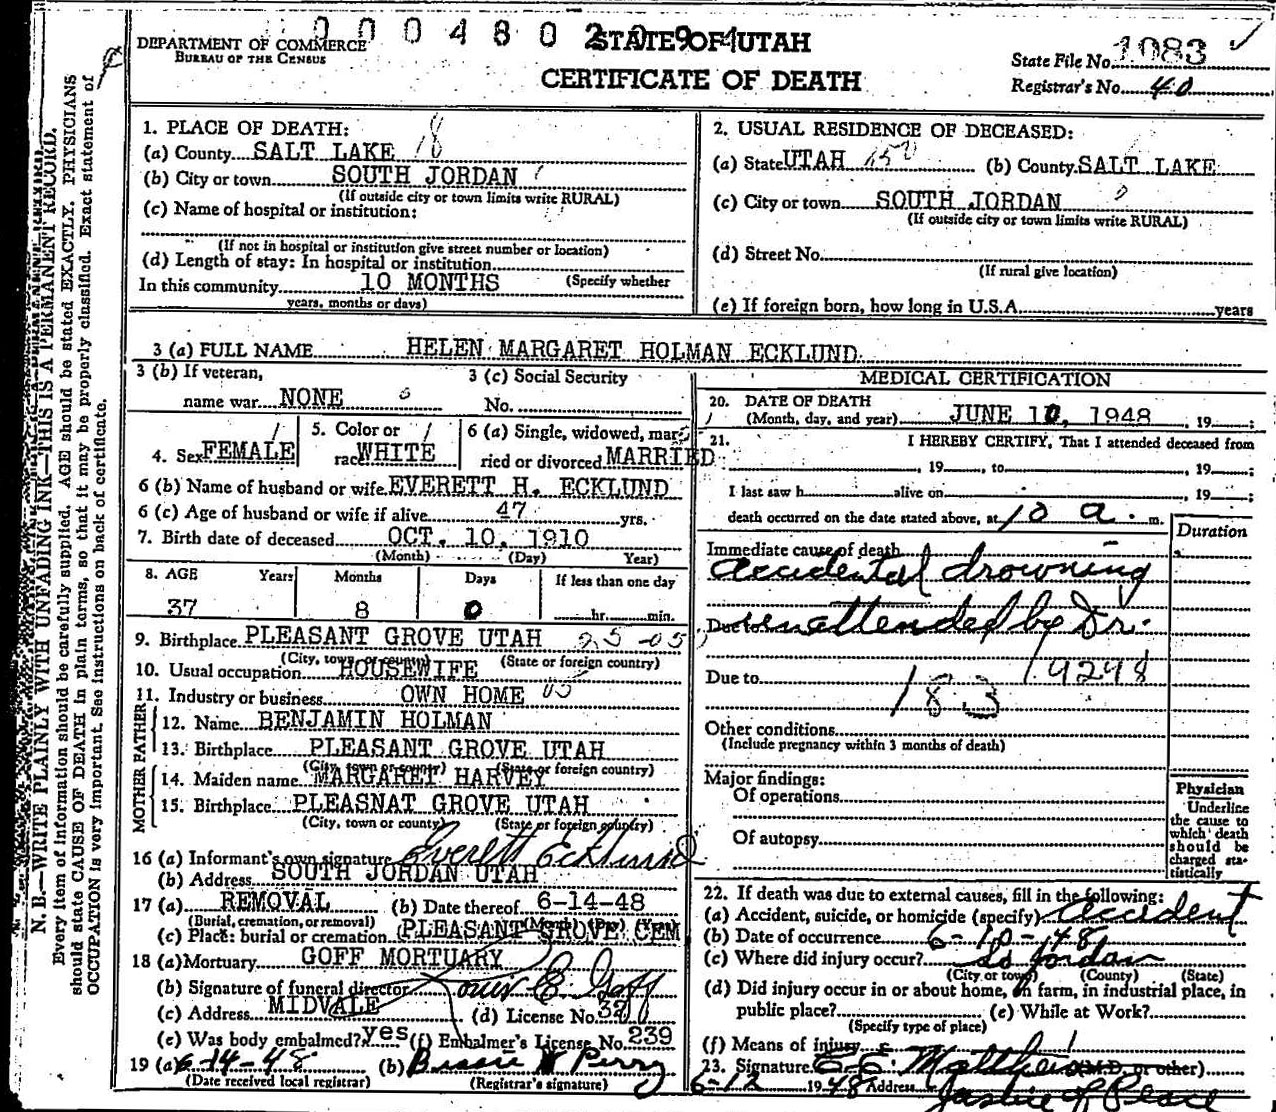 0 0 0 4 8 0 2 0 9 4
DEPARTMENT OF COMMERCE
BUREAU OF THE CENSUS
STATE OF UTAH
CERTIFICATE OF DEATH
State File No. 1083
Registrar's No. 40
N. B.—WRITE PLAINLY WITH UNFADING INK—THIS IS A PERMANENT RECORD.
Every item of information should be carefully supplied. AGE should be stated EXACTLY. PHYSICIANS
should state CAUSE OF DEATH in plain terms, so that it may be properly classified. Exact statement of
OCCUPATION is very important. See instructions on back of certificate.
1. PLACE OF DEATH: 18
(a) County SALT LAKE
(b) City or town SOUTH JORDAN
(If outside city or town limits write RURAL)
(c) Name of hospital or institution:
(If not in hospital or institution give street number or location)
(d) Length of stay: In hospital or institution
(Specify whether
In this community 10 MONTHS
years, months or days)
2. USUAL RESIDENCE OF DECEASED:
(a) State UTAH (b) County SALT LAKE
(c) City or town SOUTH JORDAN
(If outside city or town limits write RURAL)
(d) Street No.
(If rural give location)
(e) If foreign born, how long in U.S.A. years
3 (a) FULL NAME HELEN MARGARET HOLMAN ECKLUND
3 (b) If veteran,
name war NONE
3 (c) Social Security
No.
4. Sex FEMALE
5. Color or
race WHITE
6 (a) Single, widowed, mar-
ried or divorced MARRIED
6 (b) Name of husband or wife EVERETT H. ECKLUND
6 (c) Age of husband or wife if alive 47 yrs.
7. Birth date of deceased OCT. 10, 1910
(Month) (Day) Year)
8. AGE Years Months Days If less than one day
37 8 0 hr. min.
9. Birthplace PLEASANT GROVE UTAH 25-05
(City, town or county) (State or foreign country)
10. Usual occupation HOUSEWIFE
11. Industry or business OWN HOME
FATHER
12. Name BENJAMIN HOLMAN
13. Birthplace PLEASANT GROVE UTAH
(City, town or county) (State or foreign country)
MOTHER
14. Maiden name MARGARET HARVEY
15. Birthplace PLEASNAT GROVE UTAH
(City, town or county) (State or foreign country)
16 (a) Informant's own signature Everett Ecklund
(b) Address SOUTH JORDAN UTAH
17 (a) REMOVAL (b) Date thereof 6-14-48
(Burial, cremation, or removal)
(c) Place: burial or cremation PLEASANT GROVE CEM
18 (a) Mortuary GOFF MORTUARY
(b) Signature of funeral director Louis E Goff
(c) Address MIDVALE (d) License No.
(e) Was body embalmed? yes (f) Embalmer's License No. 239
19 (a) 6-14-48 (b) Bessie W Perry
(Date received local registrar) (Registrar's signature)
MEDICAL CERTIFICATION
20. DATE OF DEATH
(Month, day, and year) JUNE 10, 1948, 19 ;
21. I HEREBY CERTIFY, That I attended deceased from
, 19 , to , 19 ;
I last saw h alive on , 19 ;
death occurred on the date stated above, at 10 a. m.
Duration
Immediate cause of death
accidental drowning
Due to unattended by Dr.
Due to 183 19248
Other conditions
(Include pregnancy within 3 months of death)
Major findings:
Of operations
Of autopsy
Physician
Underline
the cause to
which death
should be
charged sta-
tistically
22. If death was due to external causes, fill in the following:
(a) Accident, suicide, or homicide (specify) accident
(b) Date of occurrence 6-10-48
(c) Where did injury occur? So Jordan
(City or town) (County) (State)
(d) Did injury occur in or about home, on farm, in industrial place, in
public place? (e) While at Work?
(Specify type of place)
(f) Means of injury
23. Signature E E Matthews (M.D. or other)
6-12 1948 Address Justice of Peace